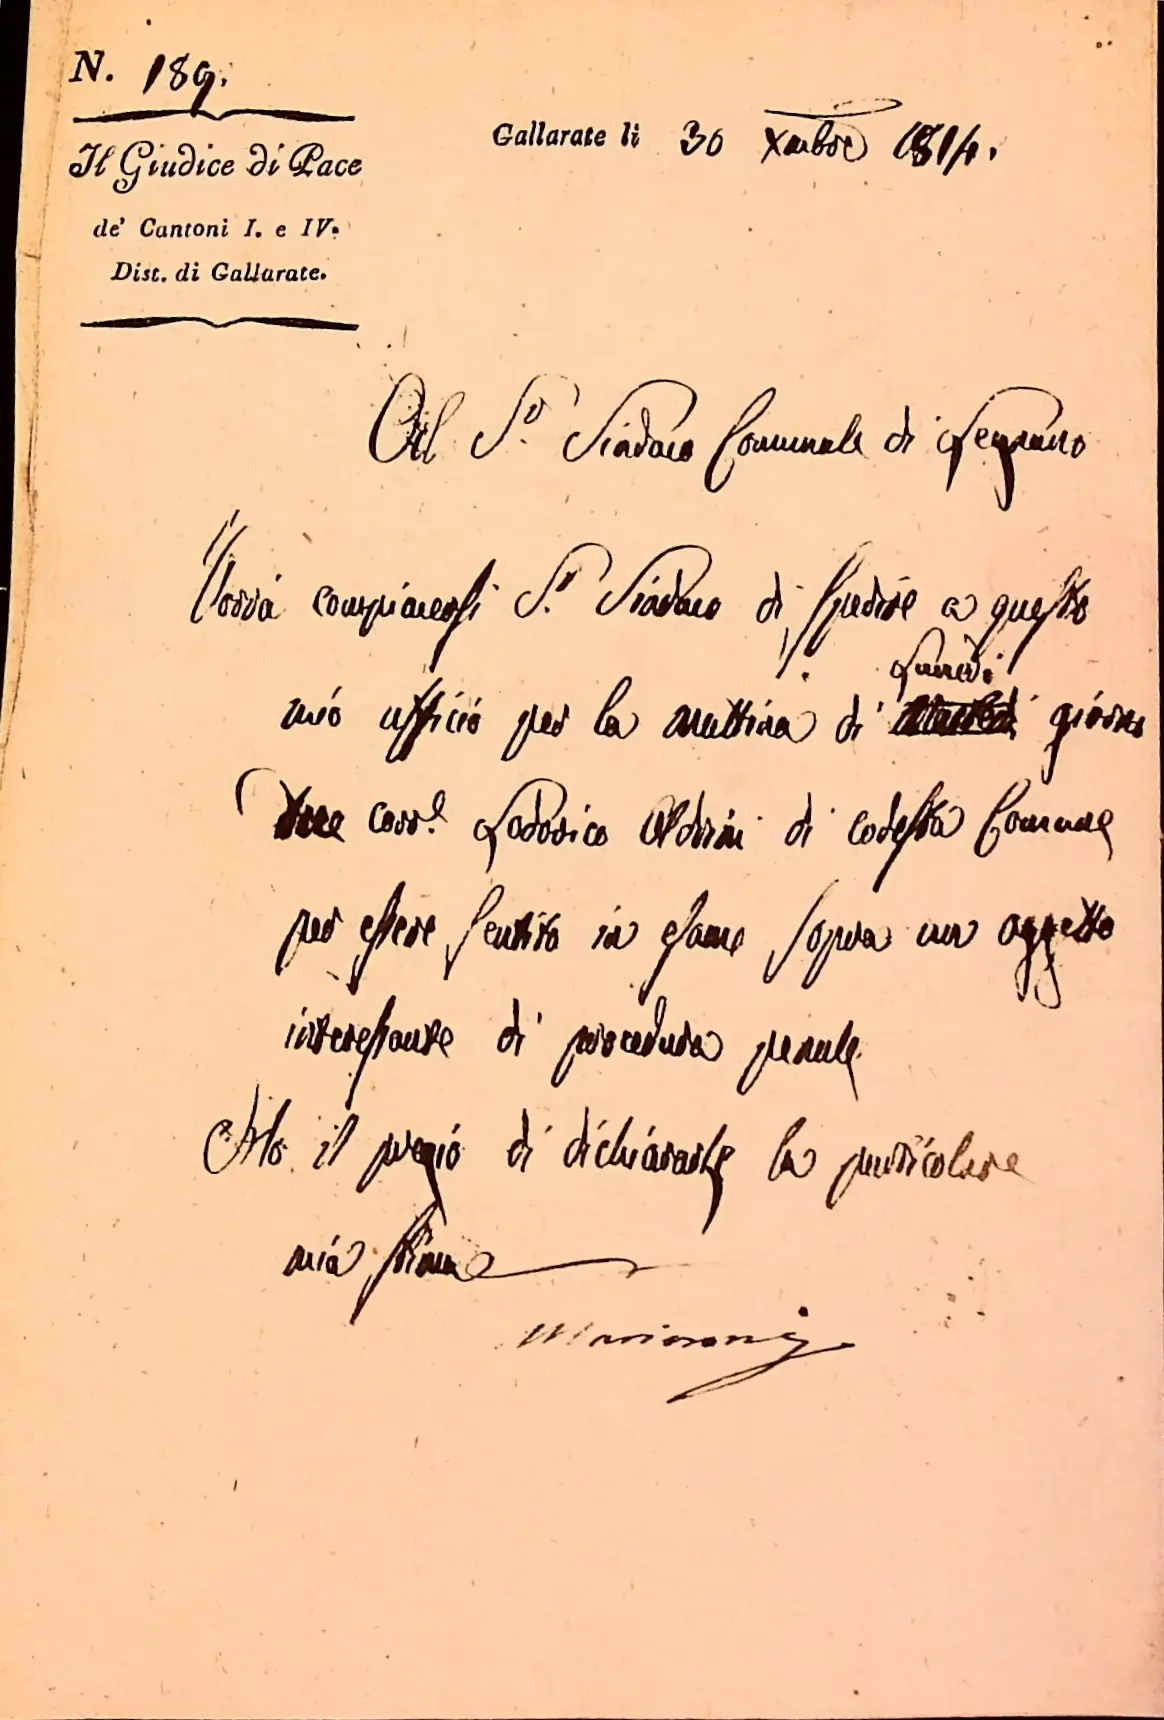 N. 189.
Il Giudice di Pace
de' Cantoni I. e IV.
Dist. di Gallarate.
Gallarate li 30 Xmbre 1814.
Al Sr. Sindaco Comunale di Legnano
Vorrà compiacersi Sr. Sindaco di spedire a questo
mio ufficio per la mattina di Lunedì giorno
due corre. Lodovico Aldrini di codesta Comune
per essere sentito in esame sopra un oggetto
interessante di procedura penale
Ho il pregio di dichiararle la particolare
mia stima